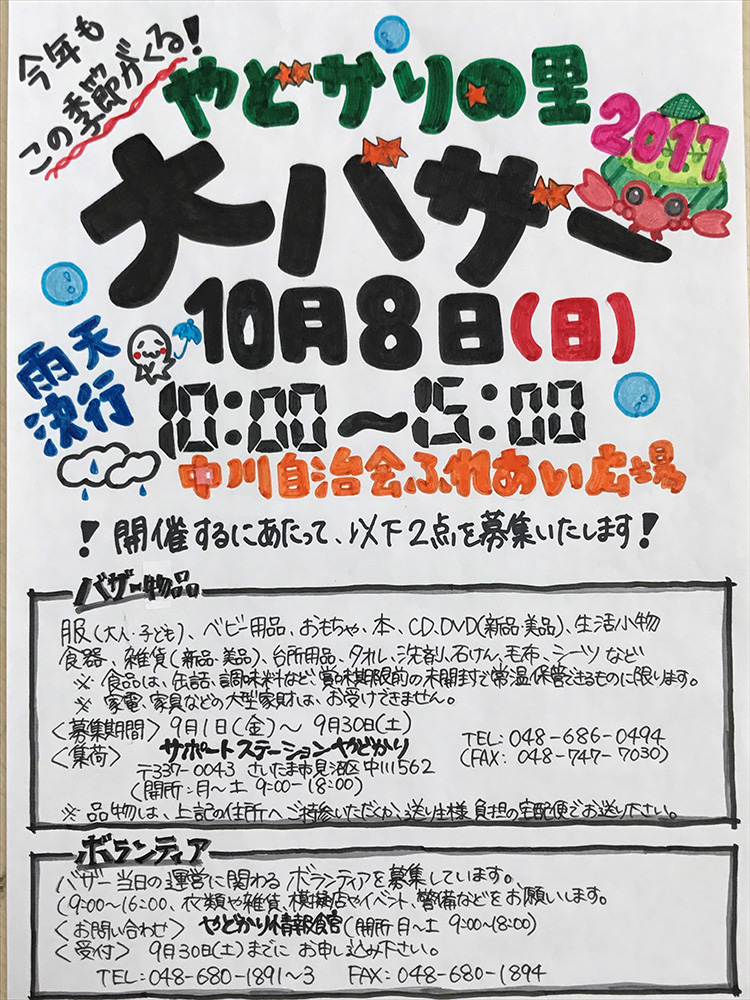 今年も
この季節がくる!
やどかりの里
2017
大バザー
10月8日(日)
雨天
決行
10:00～15:00
中川自治会ふれあい広場
！開催するにあたって、以下2点を募集いたします！
バザー物品
服(大人・子ども)、ベビー用品、おもちゃ、本、CD、DVD(新品・美品)、生活小物
食器、雑貨(新品・美品)、台所用品、タオル、洗剤、石けん、毛布、シーツなど
※ 食品は、缶詰、調味料など、賞味期限前の未開封で常温保管できるものに限ります。
※ 家電、家具などの大型家財は、お受けできません。
〈募集期間〉 9月1日(金)～ 9月30日(土)
〈集荷〉 サポートステーションやどかり
TEL: 048-686-0494
(FAX: 048-747-7030)
〒337-0043 さいたま市見沼区中川562
(開所:月～土 9:00-18:00)
※品物は、上記の住所へご持参いただくか、送り主様負担の宅配便でお送り下さい。
ボランティア
バザー当日の運営に関わるボランティアを募集しています。
(9:00～16:00、衣類や雑貨、模擬店やイベント、警備などをお願いします。
〈お問い合わせ〉 やどかり情報館(開所月～土 9:00～18:00)
〈受付〉 9月30日(土)までにお申し込み下さい。
TEL:048-680-1891～3 FAX:048-680-1894